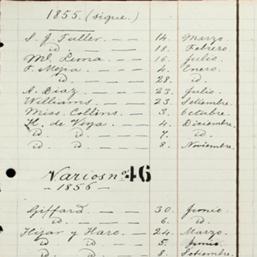 1855. (sigue.)
S. J. Tuller. — — 14. Marzo.
id — — 18. Febrero
Ml. Lerma. — — 16. Julio.
F. Mejia — — 4. Enero.
— — 28. id.
A. Diaz. — — 23. Julio.
Williams. — — 23. Setiembre.
Miss. Collins. — 3. Octubre.
H. de Vega. — — 4. Diciembre
id id — — 7. id
id id — — 8. Noviembre.
Varios nº 46
— 1856 —
Giffard. — — 30. Junio.
id — — 6. id
Hijar y Haro — 24. Marzo.
id id — 5. Junio.
id id — 8. Setiembre.